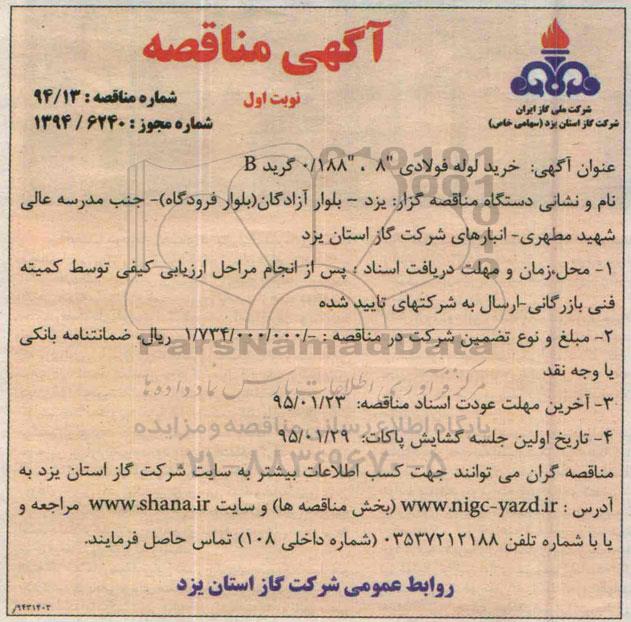 آگهی مناقصه
نوبت اول
شماره مناقصه : ۹۴/۱۳
شماره مجوز : ۶۲۴۰ / ۱۳۹۴
شرکت ملی گاز ایران
شرکت گاز استان یزد (سهامی خاص)
عنوان آگهی: خرید لوله فولادی "۸ ، "۰/۱۸۸ گرید B
نام و نشانی دستگاه مناقصه گزار: یزد – بلوار آزادگان(بلوار فرودگاه)- جنب مدرسه عالی
شهید مطهری- انبارهای شرکت گاز استان یزد
۱- محل،زمان و مهلت دریافت اسناد : پس از انجام مراحل ارزیابی کیفی توسط کمیته
فنی بازرگانی-ارسال به شرکتهای تایید شده
۲- مبلغ و نوع تضمین شرکت در مناقصه : -/۱/۷۳۴/۰۰۰/۰۰۰ ریال، ضمانتنامه بانکی
یا وجه نقد
۳- آخرین مهلت عودت اسناد مناقصه: ۹۵/۰۱/۲۳
۴- تاریخ اولین جلسه گشایش پاکات: ۹۵/۰۱/۲۹
مناقصه گران می توانند جهت کسب اطلاعات بیشتر به سایت شرکت گاز استان یزد به
آدرس : www.nigc-yazd.ir (بخش مناقصه ها) و سایت www.shana.ir مراجعه و
یا با شماره تلفن ۰۳۵۳۷۲۱۲۱۸۸ (شماره داخلی ۱۰۸) تماس حاصل فرمایند.
روابط عمومی شرکت گاز استان یزد
۹۴۳۱۴۰۳/
ParsNamadData
مرکز فرآوری اطلاعات پارس نماد داده ها
پایگاه اطلاع رسانی مناقصه و مزایده
۰۲۱-۸۸۳۴۹۶۷۰-۵